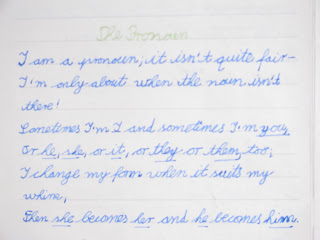 The Pronoun
I am a pronoun; it isn't quite fair—
I'm only about when the noun isn't
there!
Sometimes I'm I and sometimes I'm you,
Or he, she, or it, or they or them, too;
I change my form when it suits my
whine,
Then she becomes her and he becomes him.